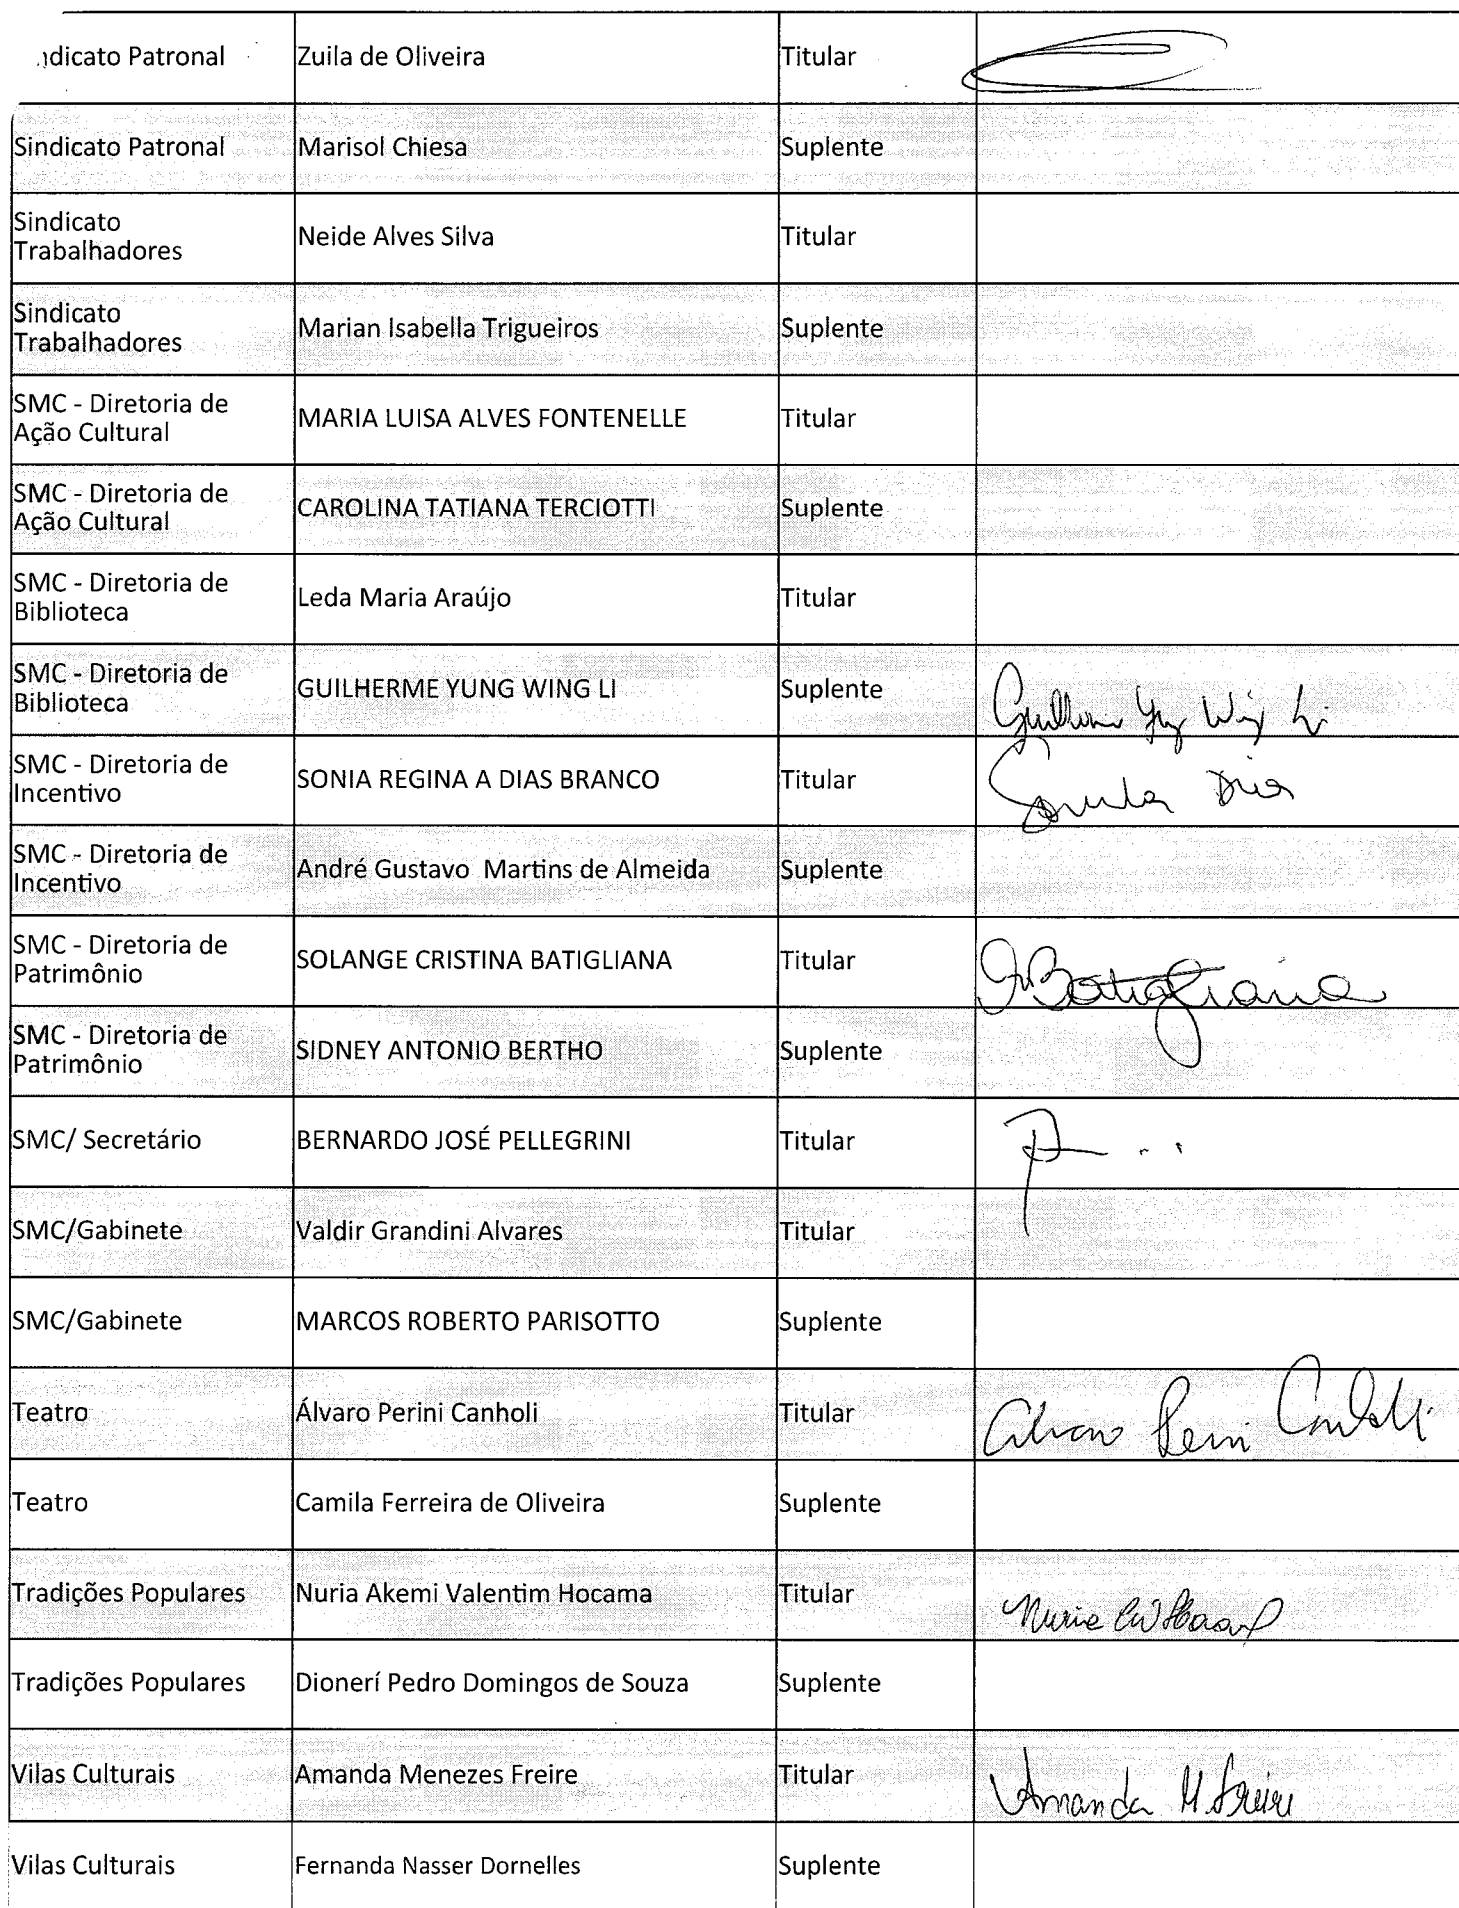 ndicato Patronal Zuila de Oliveira Titular
Sindicato Patronal Marisol Chiesa Suplente
Sindicato
Trabalhadores Neide Alves Silva Titular
Sindicato
Trabalhadores Marian Isabella Trigueiros Suplente
SMC - Diretoria de
Ação Cultural MARIA LUISA ALVES FONTENELLE Titular
SMC - Diretoria de
Ação Cultural CAROLINA TATIANA TERCIOTTI Suplente
SMC - Diretoria de
Biblioteca Leda Maria Araújo Titular
SMC - Diretoria de
Biblioteca GUILHERME YUNG WING LI Suplente Guilherme Yung Wing Li
SMC - Diretoria de
Incentivo SONIA REGINA A DIAS BRANCO Titular Sonia Dias
SMC - Diretoria de
Incentivo André Gustavo Martins de Almeida Suplente
SMC - Diretoria de
Patrimônio SOLANGE CRISTINA BATIGLIANA Titular Batigliana
SMC - Diretoria de
Patrimônio SIDNEY ANTONIO BERTHO Suplente
SMC/ Secretário BERNARDO JOSÉ PELLEGRINI Titular
SMC/Gabinete Valdir Grandini Alvares Titular
SMC/Gabinete MARCOS ROBERTO PARISOTTO Suplente
Teatro Álvaro Perini Canholi Titular Alvaro Perini Canholi
Teatro Camila Ferreira de Oliveira Suplente
Tradições Populares Nuria Akemi Valentim Hocama Titular Nuria
Tradições Populares Dionerí Pedro Domingos de Souza Suplente
Vilas Culturais Amanda Menezes Freire Titular Amanda M. Freire
Vilas Culturais Fernanda Nasser Dornelles Suplente